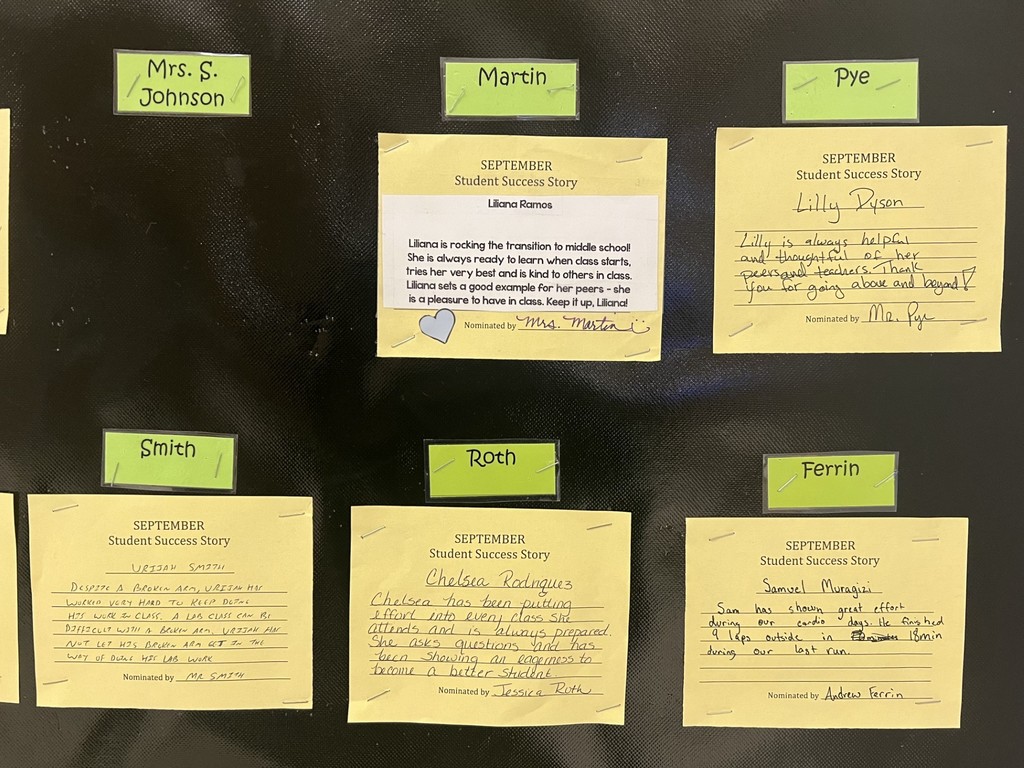 Mrs. S.
Johnson
Martin
SEPTEMBER
Student Success Story
Liliana Ramos
Liliana is rocking the transition to middle school!
She is always ready to learn when class starts,
tries her very best and is kind to others in class.
Liliana sets a good example for her peers - she
is a pleasure to have in class. Keep it up, Liliana!
Nominated by Mrs. Martin
Pye
SEPTEMBER
Student Success Story
Lilly Dyson
Lilly is always helpful
and thoughtful of her
peers and teachers. Thank
you for going above and beyond!
Nominated by Mr. Pye
Smith
SEPTEMBER
Student Success Story
URIJAH SMITH
DESPITE A BROKEN ARM, URIJAH HAS
WORKED VERY HARD TO KEEP DOING
HIS WORK IN CLASS. A LAB CLASS CAN BE
DIFFICULT WITH A BROKEN ARM. URIJAH HAS
NOT LET HIS BROKEN ARM GET IN THE
WAY OF DOING HIS LAB WORK
Nominated by MR SMITH
Roth
SEPTEMBER
Student Success Story
Chelsea Rodriguez
Chelsea has been putting
effort into every class she
attends and is always prepared.
She asks questions and has
been showing an eagerness to
become a better student.
Nominated by Jessica Roth
Ferrin
SEPTEMBER
Student Success Story
Samuel Muragizi
Sam has shown great effort
during our cardio days. He finished
9 laps outside in 18min
during our last run.
Nominated by Andrew Ferrin